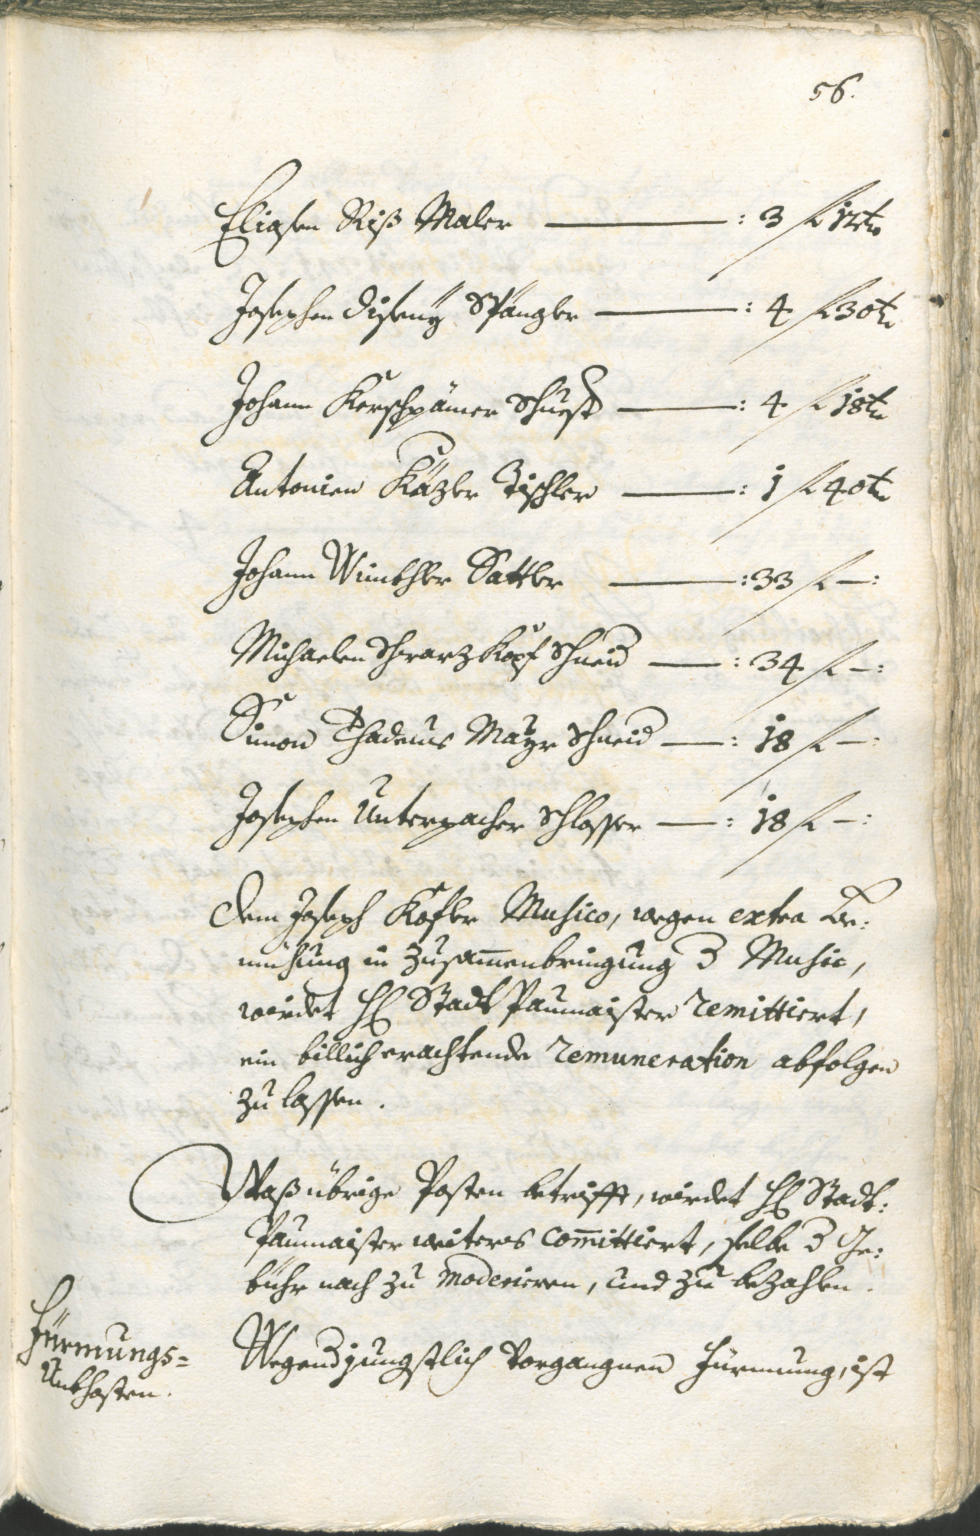 56.
Eliasen Riß Maler — : 3 fl 12 kr
Josephen Diseny Spängler — : 4 fl 30 kr
Johann Kerschpämer Schuest — : 4 fl 18 kr
Antonien Käzler Tischler — : 1 fl 40 kr
Johann Winkhler Sattler — : 33 fl — :
Michaelen Schwarzkopf Schneid — : 34 fl — :
Simon Thadeus Mayr Schneid — : 18 fl — :
Josephen Unterpacher Schlosser — : 18 fl — :
Dem Joseph Kofler Musico, wegen extra Be:
müehung in Zusam̄enbringung d Music,
wirdet H Stadt Paumaister remittiert,
ein billich erachtende remuneration abfolgen
zu lassen.
Waß übrige Posten betrifft, wirdet H Stadt:
Paumaister weiters com̄ittiert, selbe d Ge:
bühr nach zu moderieren, und zu bezahlen.
Fürmungs=
Unkhosten.
Wegen d jungstlich vorgangnen Fürmung, ist